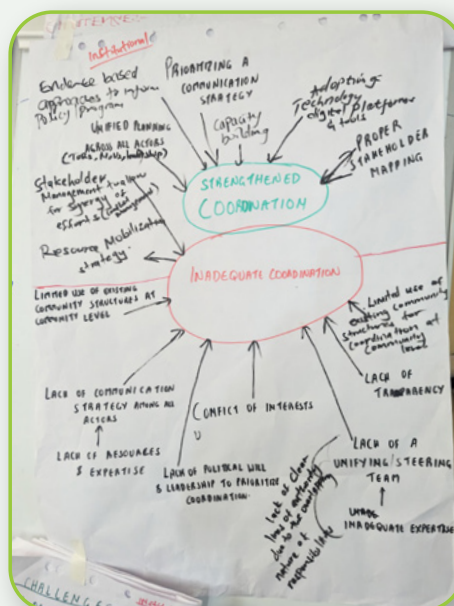 CHALLENGE:-
Institutional
Evidence based
approaches to inform
Policy/program
PRIORITIZING A
COMMUNICATION
STRATEGY
Capacity
building
Adopting
Technology
digital Platforms
& tools
UNIFIED PLANNING
ACROSS ALL ACTORS
PROPER
STAKEHOLDER
MAPPING
Stakeholder
Management
for Synergy of
efforts
Resource Mobilization
strategy.
STRENGTHENED
COORDINATION
INADEQUATE COORDINATION
LIMITED USE OF EXISTING
COMMUNITY STRUCTURES AT
COMMUNITY LEVEL
Limited use of
existing community
structures for
coordination at
Community
level
LACK OF COMMUNICATION
STRATEGY AMONG ALL
ACTORS
LACK OF RESOURCES
& EXPERTISE
CONFICT OF INTERESTS
LACK OF POLITICAL WILL
& LEADERSHIP TO PRIORITIZE
COORDINATION.
LACK OF
TRANSPARENCY
LACK OF A
UNIFYING/STEERING
TEAM
INADEQUATE EXPERTISE
lack of clear
line of authority
due to the overlapping
nature of
responsibilities
CHALLENGE